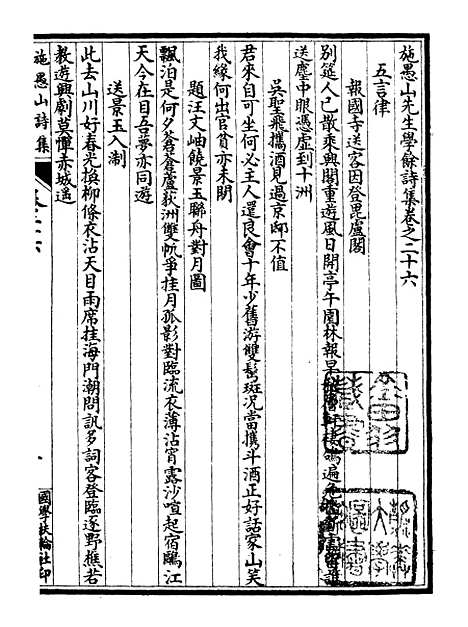 施愚山先生學餘詩集卷之二十六
五言律
報國寺送客因登毘盧閣
別筵人已散乘興閣重遊風日開亭午園林報早
送塵中眼憑虛到十洲
吳聖飛攜酒見過京邸不值
君來自可坐何必主人還良會十年少舊游雙鬢斑況當攜斗酒正好話家山笑
我緣何出官貧亦未閒
題汪丈岫饒景玉聯舟對月圖
飄泊是何夕蒼蒼蘆荻洲雙帆爭挂月孤影對臨流衣薄沾宵露沙喧起宿鷗江
天今在目吾夢亦同遊
送景玉入浙
此去山川好春光換柳條衣沾天目雨席挂海門潮問訊多詞客登臨逐野樵若
教遊興劇莫憚赤城遙
施愚山詩集
國學扶輪社印